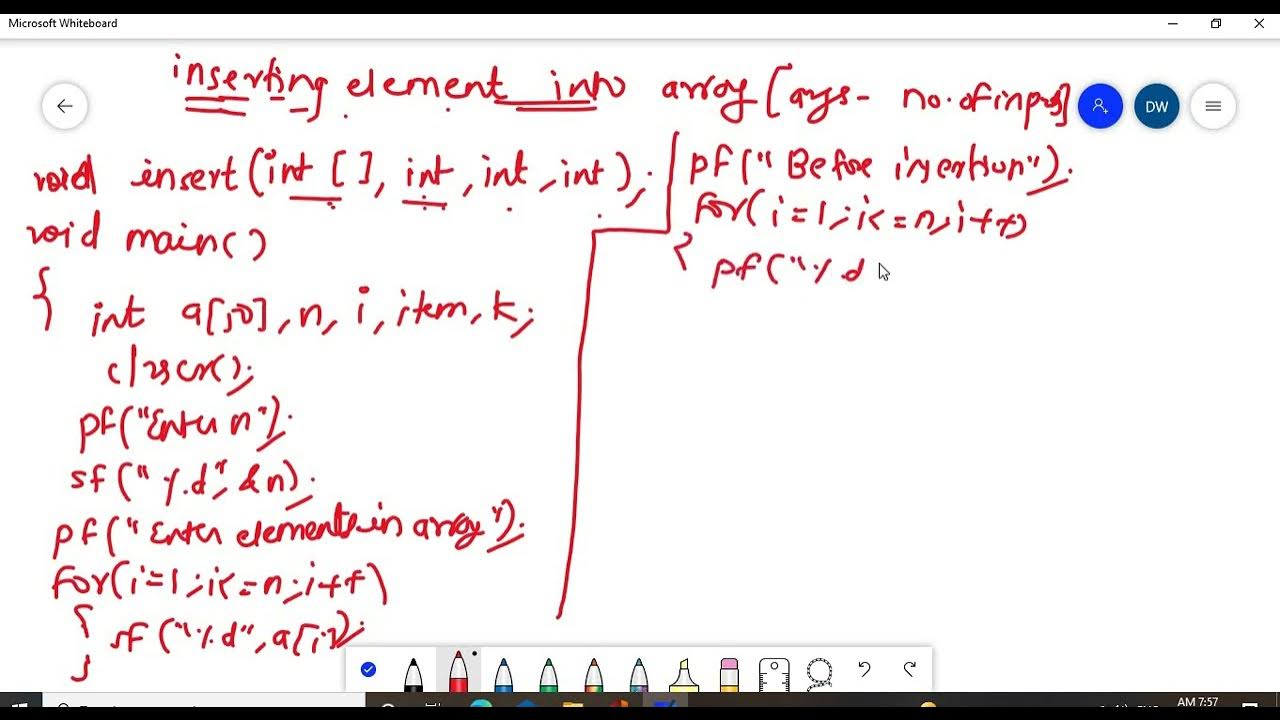 Microsoft Whiteboard
inserting element into array [args - no. of inputs]
DW
void insert(int [], int, int, int);
void main()
{
int a[50], n, i, item, k;
clrscr();
pf("Enter n");
sf("%d", &n);
pf("Enter elements in array");
for(i=1; i<=n; i++)
{ sf("%d", a[i]);
}
pf("Before insertion");
for(i=1; i<=n; i++)
{ pf("%d
AM 7:57